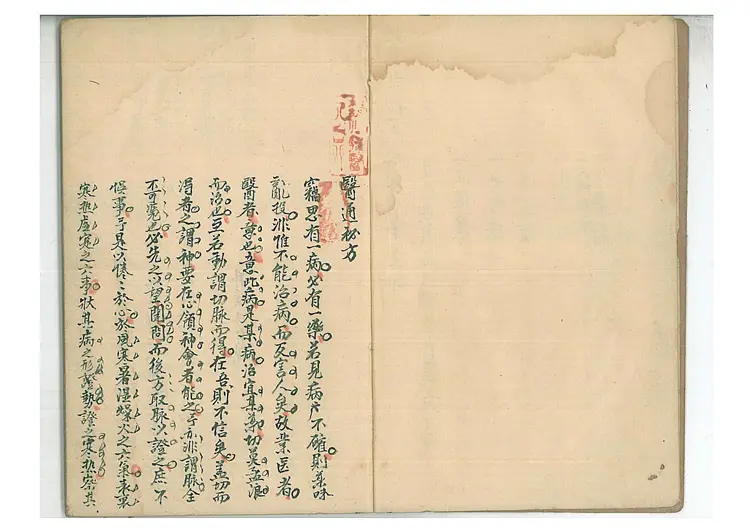 醫通秘方
竊思有一病必有一藥若見病不確則藥味
亂投非惟不能治病而反害人矣故業医者
醫者意也意此病是某病治宜某藥切莫孟浪
而治也至若動謂切脈而得在吾則不信矣盖切而
得者之謂神要在心領神會者能之予亦非謂脈全
不可憑也必先之以望聞問而後方取脈以證之庶不
悮事予是以惓惓於心於風寒暑濕燥火之六氣表裏
寒热虛寔之六事狀其病之形勢證之寒热察其